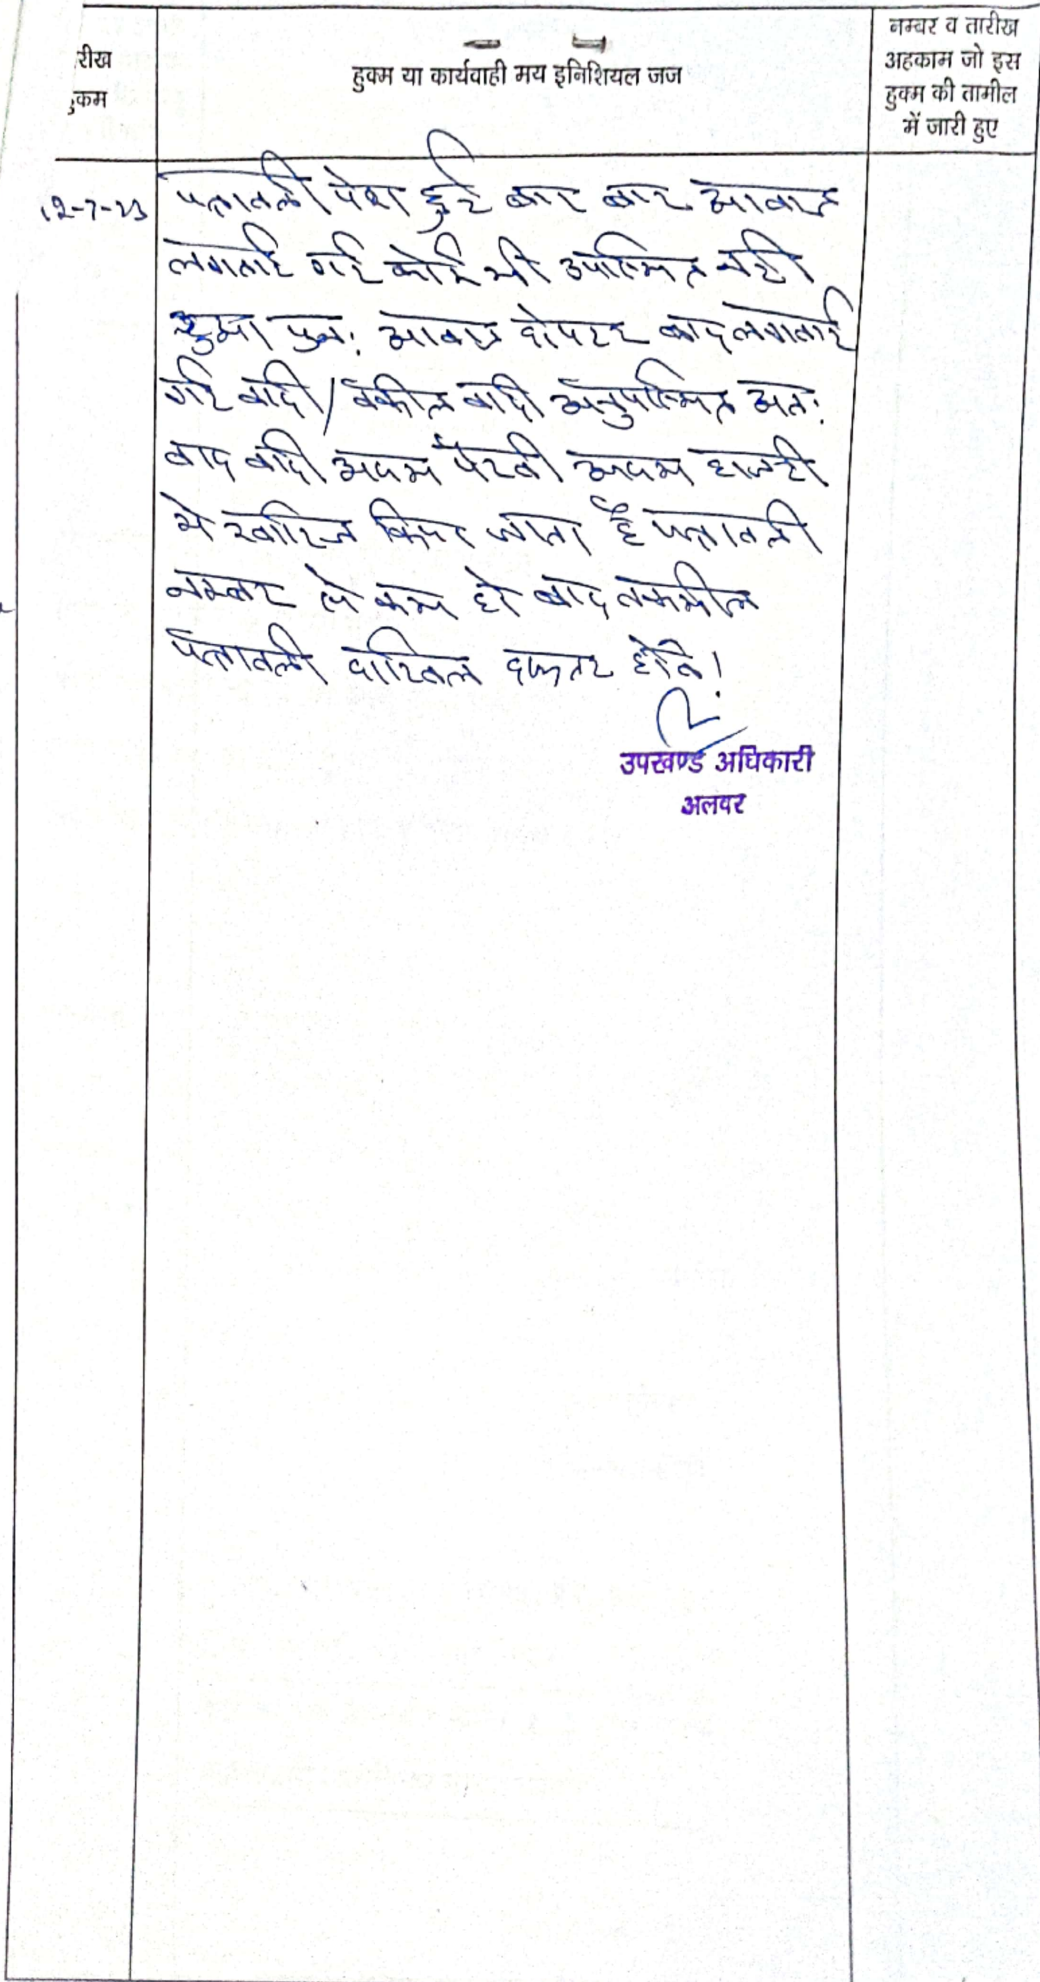 रीख
हुकम
हुक्म या कार्यवाही मय इनिशियल जज
नम्बर व तारीख
अहकाम जो इस
हुक्म की तामील
में जारी हुए
12-7-23
पत्रावली पेश हुई बार बार आवाज
लगवाई गई कोई भी उपस्थित नही
हुआ पुन: आवाज दोपहर बाद लगवाई
गई वादी/वकील वादी अनुपस्थित अत:
वाद वादी अदम पैरवी अदम हाजरी
मे खारिज किया जाता है पत्रावली
नम्बर से कम हो बाद तकमील
पत्रावली दाखिल दफ्तर होवे!
उपखण्ड अधिकारी
अलवर